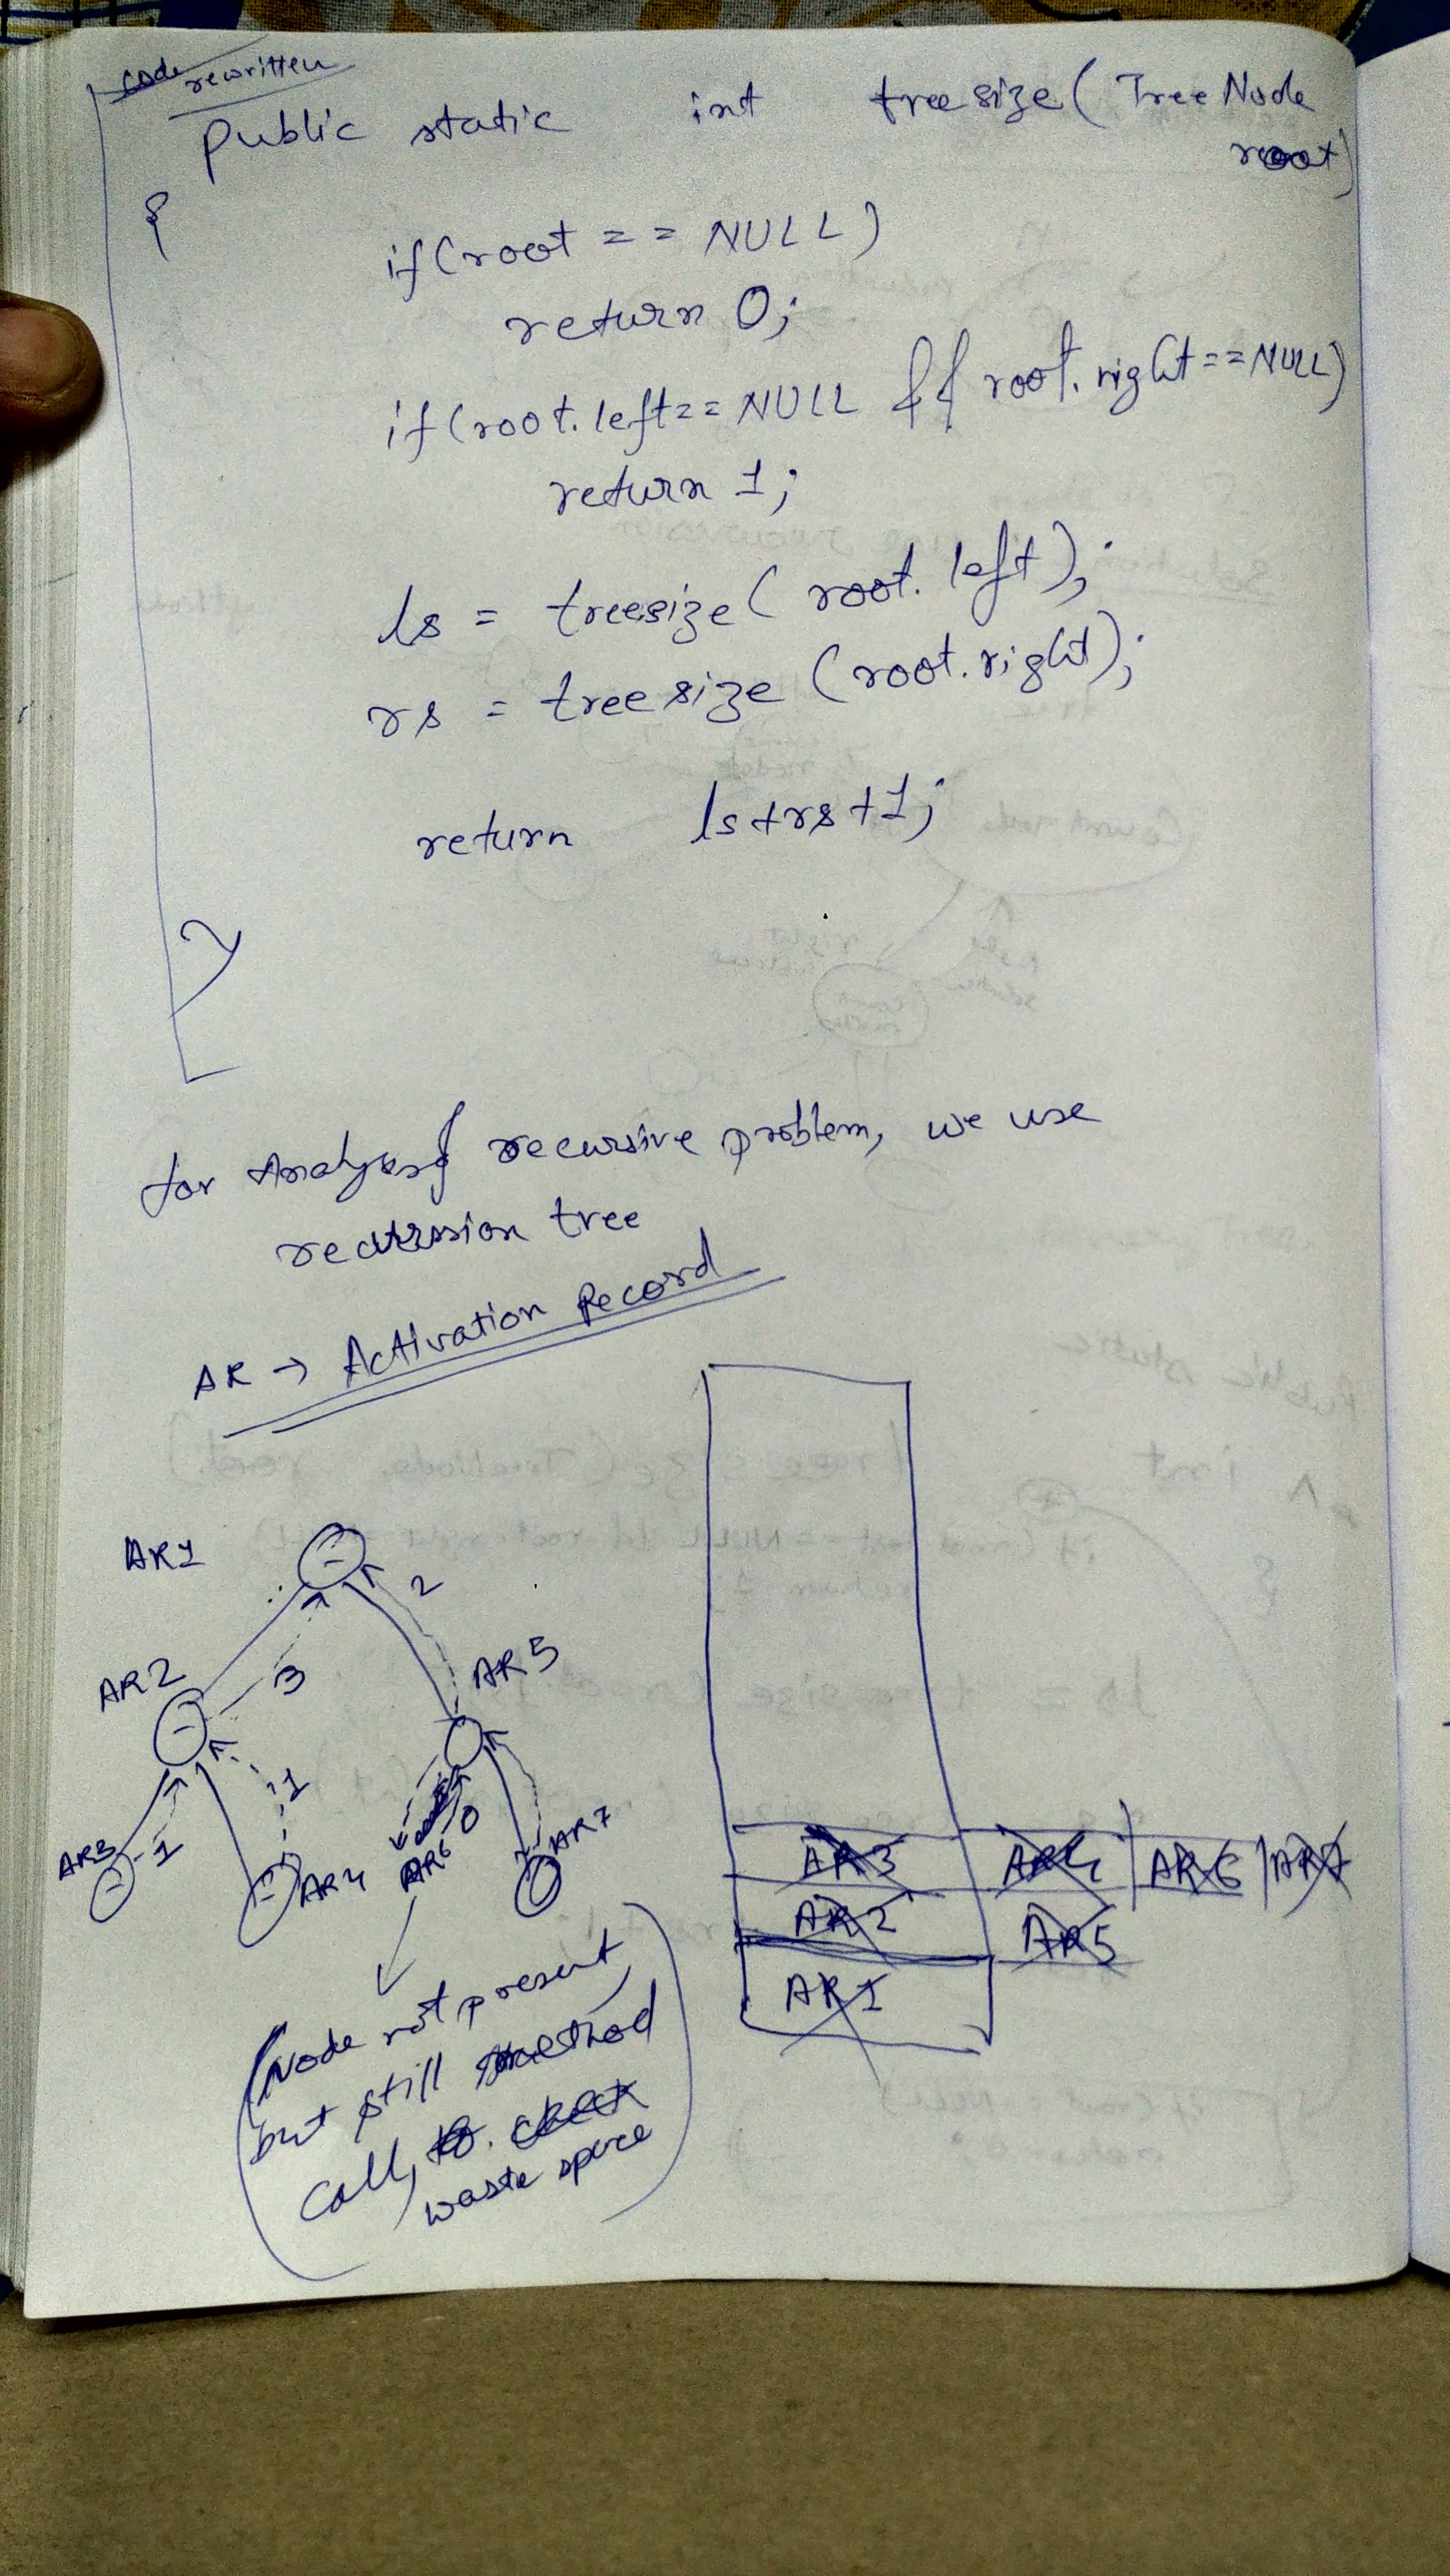 code rewritten
public static int treesize(TreeNode
root)
{
if(root == NULL)
return 0;
if(root.left==NULL && root.right==NULL)
return 1;
ls = treesize( root.left);
rs = treesize (root.right);
return ls+rs+1;
}
for Analysis of recursive problem, we use
recursion tree
AR → Activation Record
AR1
2
3
AR2
AR5
1
1
0
AR3
AR4
AR6
AR7
AR3 AR4 AR6 AR7
AR2 AR5
AR1
(Node not present
but still method
call, to check
waste space)